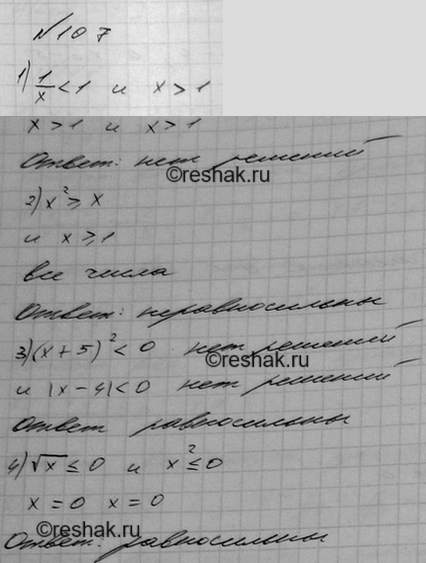 №107
1) 1/x < 1 и x > 1
x > 1 и x > 1
Ответ: нет решений
©reshak.ru
2) x² ⩾ x
и x ⩾ 1
все числа
Ответ: неравносильны
3) (x + 5)² < 0 нет решений
©reshak.ru
и |x - 4| < 0 нет решений
Ответ равносильны
4) √x ≤ 0 и x² ≤ 0
x = 0 x = 0
©reshak.ru
Ответ: равносильны